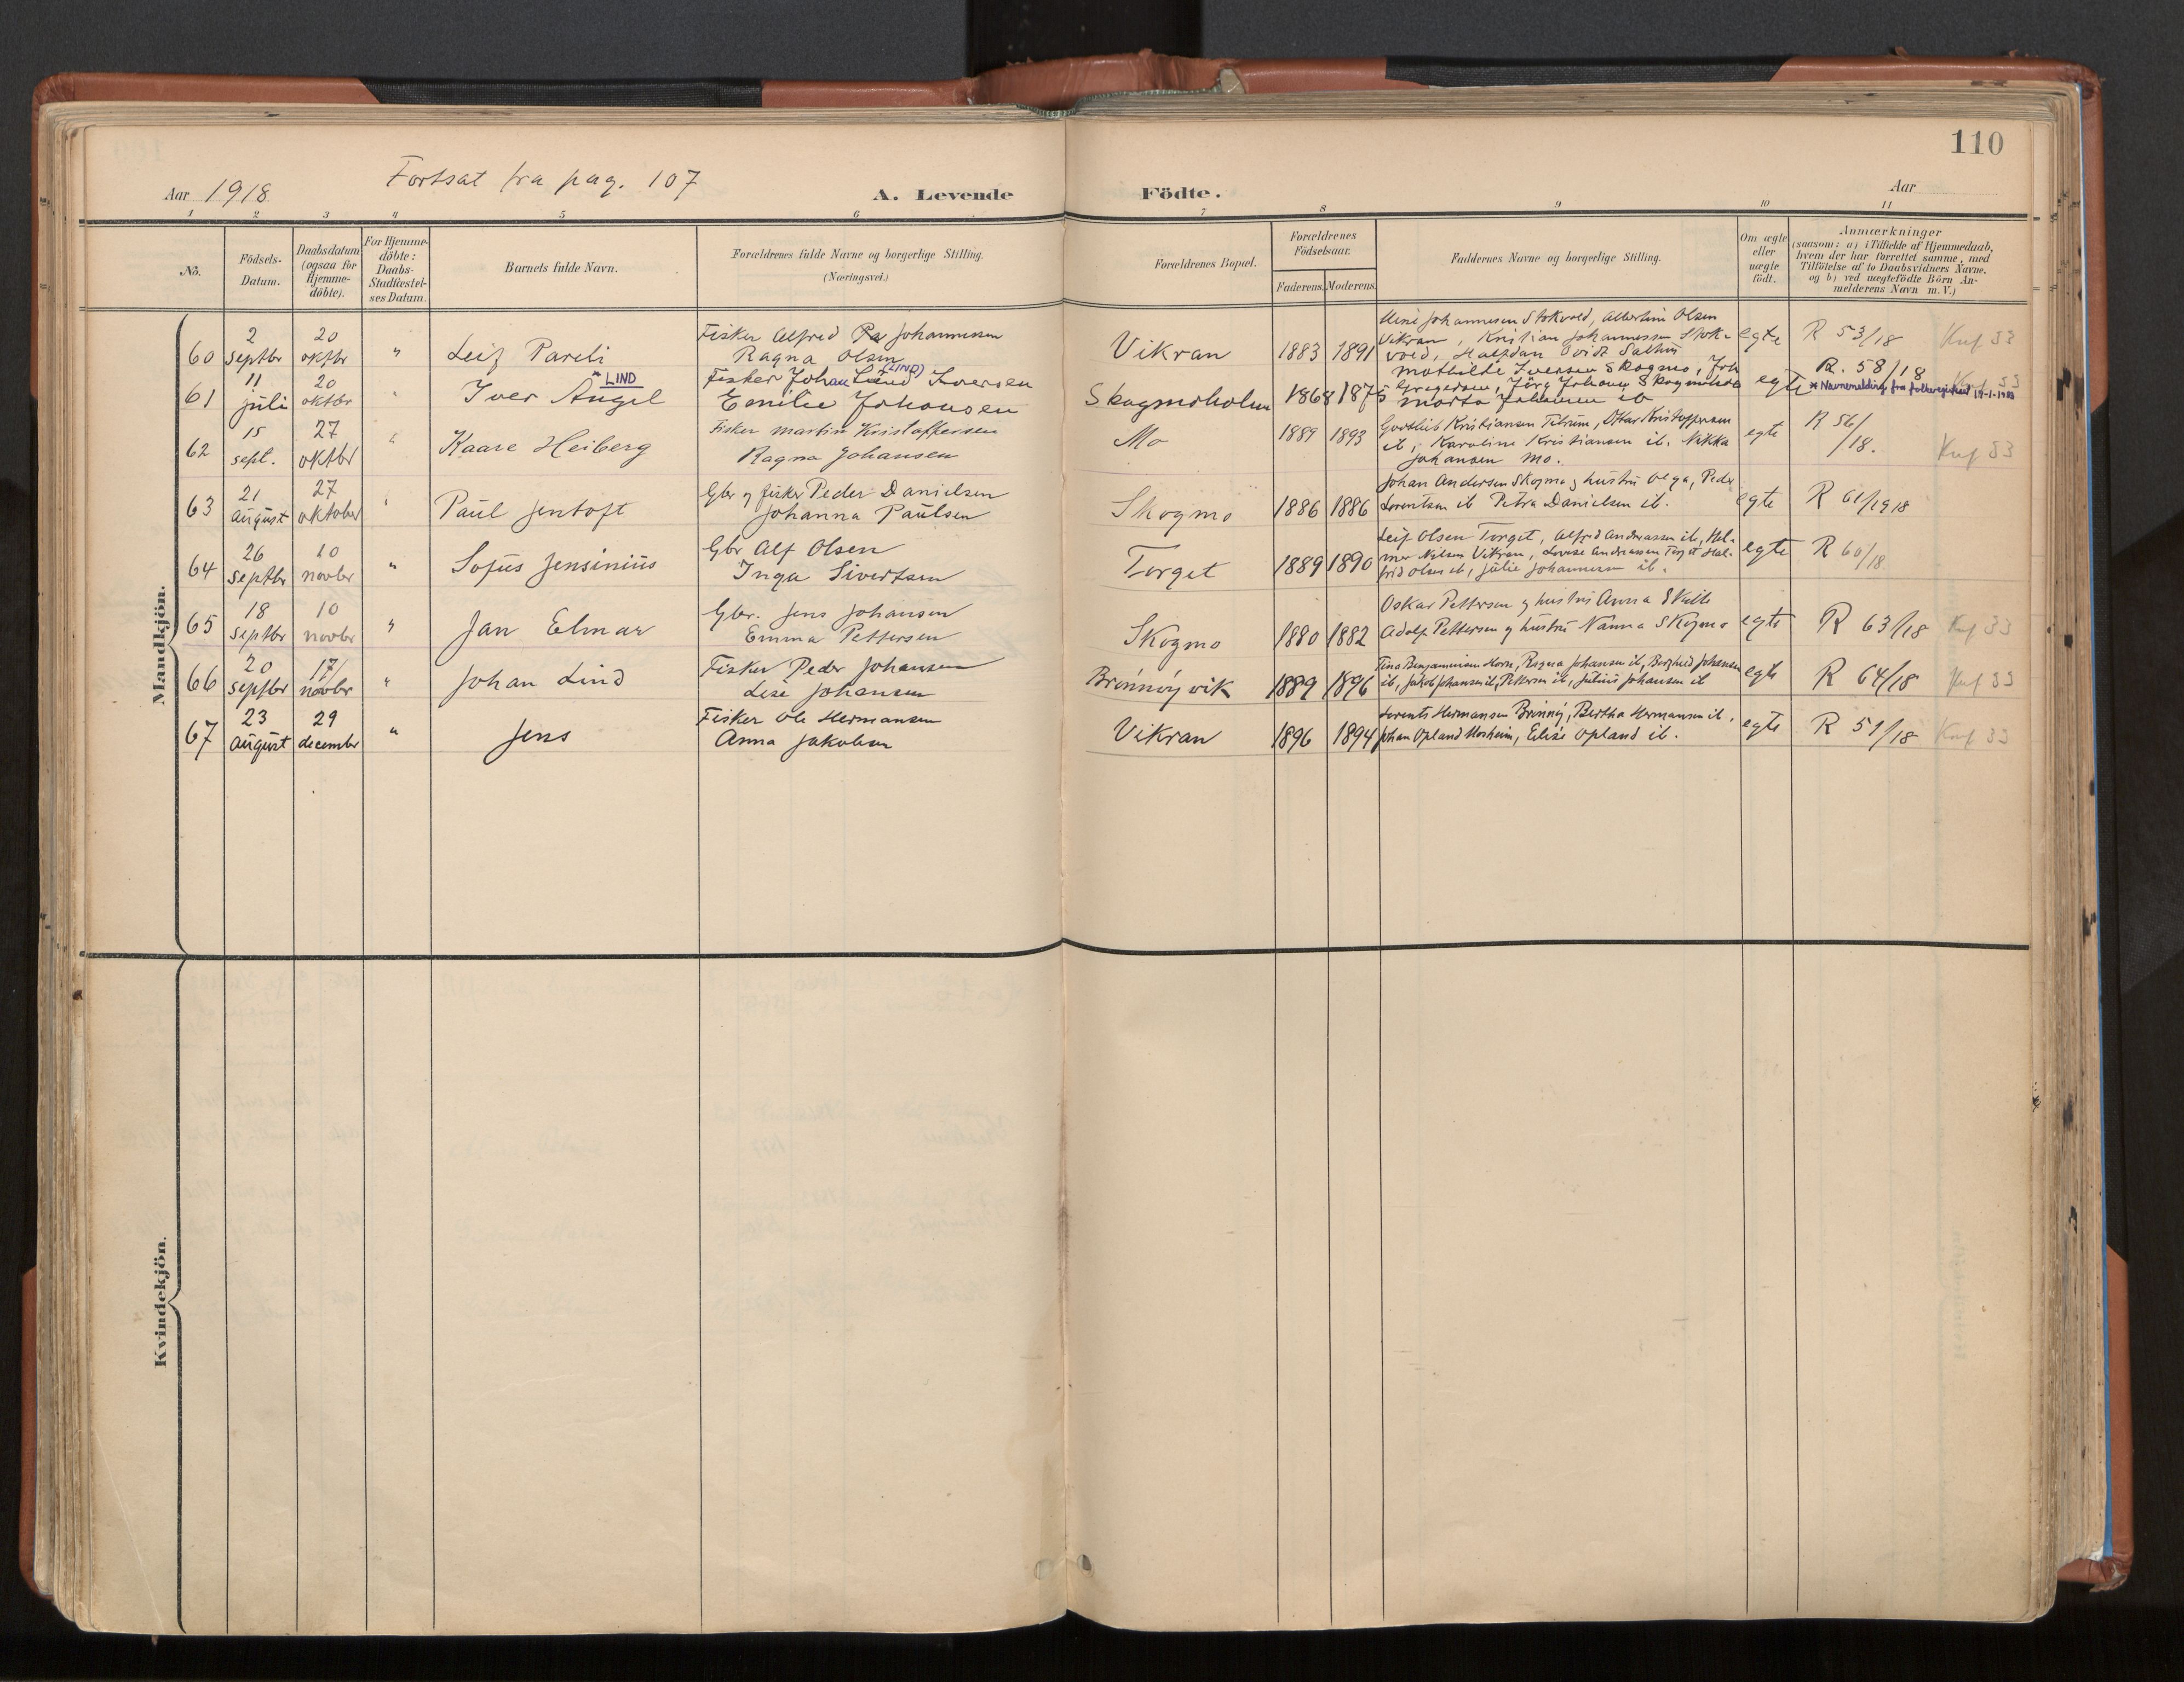 110
Fortsat fra pag. 107
Aar 1918
A. Levende Födte.
Aar
1 2 3 4 5 6 7 8 9 10 11
No.
Födsels-
Datum.
Daabsdatum
(ogsaa for
Hjemme-
döbte).
For Hjemme-
döbte:
Daabs-
Stadfæstel-
ses Datum.
Barnets fulde Navn.
Forældrenes fulde Navne og borgerlige Stilling.
(Næringsvei.)
Forældrenes Bopæl.
Forældrenes
Födselsaar.
Faderens. Moderens.
Faddernes Navne og borgerlige Stilling.
Om ægte
eller
uægte
födt.
Anmærkninger
(saasom: a) i Tilfælde af Hjemmedaab,
hvem der har forrettet samme, med
Tilföielse af to Daabsvidners Navne.
og b) ved uægtefödte Börn An-
melderens Navn m. V.)
Mandkjön.
60
2
septbr
20
oktbr
"
Leif Pareli
Fisker Alfred Johannessen
Ragna Olsen
Vikran
1883 1891
Johannesen Stokvold, Albertine Olsen
Vikran, Kristian Johannessen Stok-
vold, Halfdan
egte
R 53/18
Knf 33
61
11
juli
20
oktober
"
Iver Angel
* LIND
Fisker Johan Lind Iversen
(LIND)
Emilie Johansen
Skogmoholm
1868 1875
Mathilde Iversen Skogmo, Joh
Gregersen, Jörg Johansen Skogmoholm
Marta Johansen ib
egte
R. 58/18
* Navnemelding fra folkeregisteret
Knf 33
62
15
sept.
27
oktbr
"
Kaare Heiberg
Fisker Martin Kristoffersen
Ragna Johansen
Mo
1889 1893
Kristiansen Tilrem, Ottar Kristoffersen
ib, Karoline Kristiansen ib. Nikka
Johansen Mo.
egte
R 56/
/18.
Knf 33
63
21
august
27
oktober
"
Paul Jentoft
Gbr og fisker Peder Danielsen
Johanna Paulsen
Skogmo
1886 1886
Johan Andersen Skogmo og hustru Olga, Peder
Lorentsen ib Petra Danielsen ib.
egte
R 61/1918
64
26
septbr
10
novbr
"
Sofus Jensinius
Gbr Alf Olsen
Inga Sivertsen
Torget
1889 1890
Leif Olsen Torget, Alfred Andreassen ib, Hel-
mer Nilsen Vikran, Lovise Andreassen Torget Hal-
frid Olsen ib, Julie Johannessen ib.
egte
R 60/18
65
18
septbr
10
novbr
"
Jan Elmar
Gbr. Jens Johansen
Emma Pettersen
Skogmo
1880 1882
Oskar Pettersen og hustru Anna Skille
Adolf Pettersen og hustru Nanna Skogmo
egte
R 63/18
Knf 33
66
20
septbr
17/
novbr
"
Johan Lind
Fisker Peder Johansen
Lise Johansen
Brönnöyvik
1889 1896
Tina Benjaminsen Horn, Ragna Johansen ib, Borghild Johansen
ib, Jakob Johansen ib, Pettersen ib, Julius Johansen ib
egte
R 64/18
Knf 33
67
23
august
29
december
"
Jens
Fisker Ole Hermansen
Anna Jakobsen
Vikran
1896 1894
Lorents Hermansen Brönnöy, Bertha Hermansen ib.
Johan Opland Mosheim, Elise Opland ib.
egte
R 51/18
Knf 33
Kvindekjön.